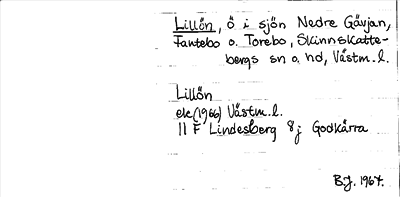 Lillön, ö i sjön Nedre Gåvjan,
Fantebo o. Torebo, Skinnskatte-
bergs sn o. hd, Västm. l.
Lillön
ek (1966) Västm. l.
11 F Lindesberg 8j Godkärra
B.J. 1967.